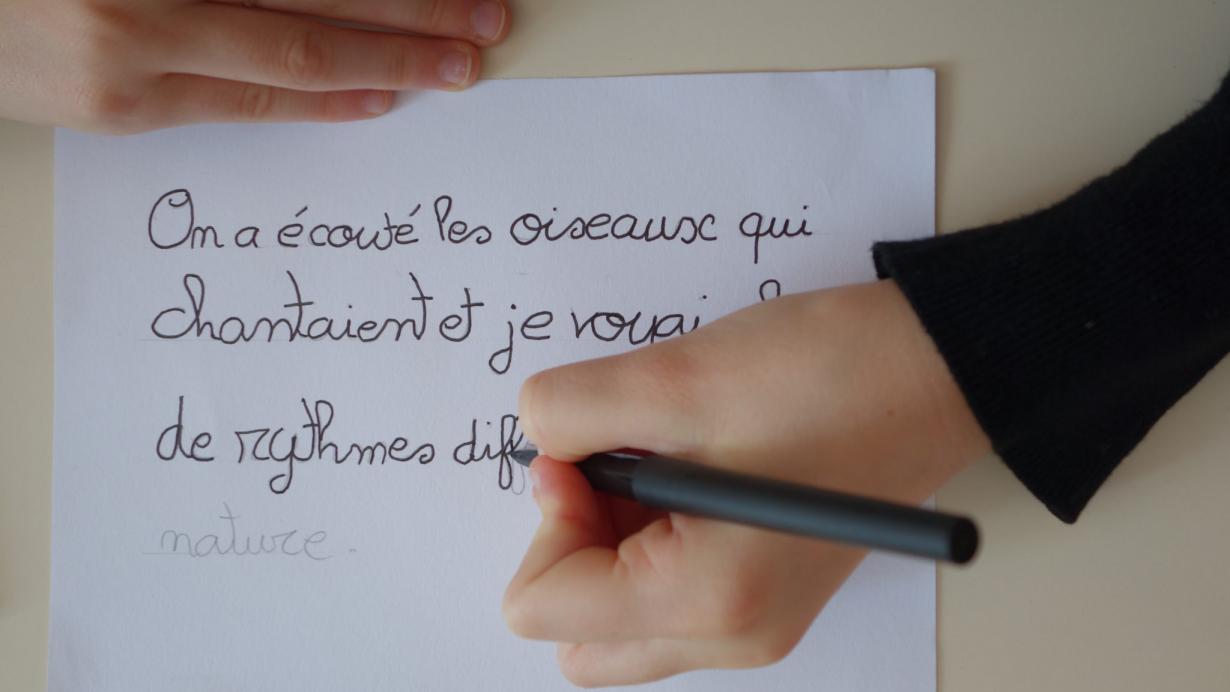 On a écouté les oiseaux qui
chantaient et je
de rythmes
nature.